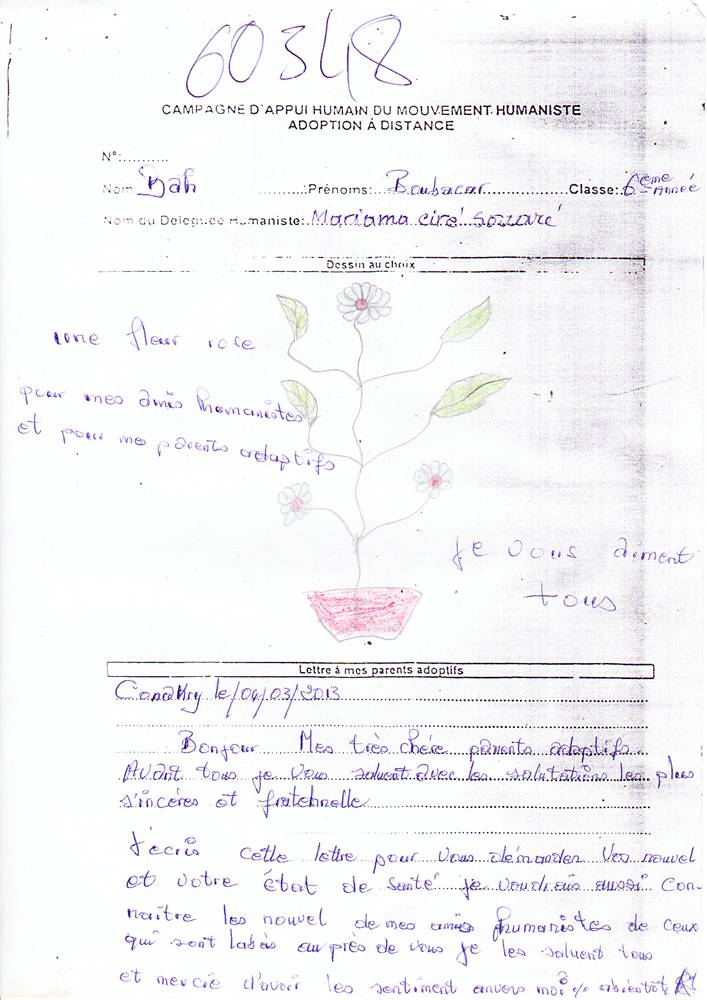 60348
CAMPAGNE D'APPUI HUMAIN DU MOUVEMENT HUMANISTE
ADOPTION À DISTANCE
N°:..........
Nom Bah Prénoms: Boubacar Classe: 6ème Année
Nom du Deleguée Humaniste: Mariama ciré
Dessin au choix
une fleur rose
pour mes amis humanistes
et pour me parents adaptifs
Je vous aiment
tous
Lettre à mes parents adoptifs
Conakry le/04/03/2013
Bonjour Mes très chère parents adaptifs
Avant tous je vous saluent avec les salutations les plus
sincères et fratehnelle
J'écris cette lettre pour vous démander vos nouvel
et votre État de santé je voudrais aussi Con-
naître les nouvel de mes amis humanistes de ceux
qui sont labàs au près de vous je les saluent tous
et mercie d'avoir les sentiment anvers moi abientôt